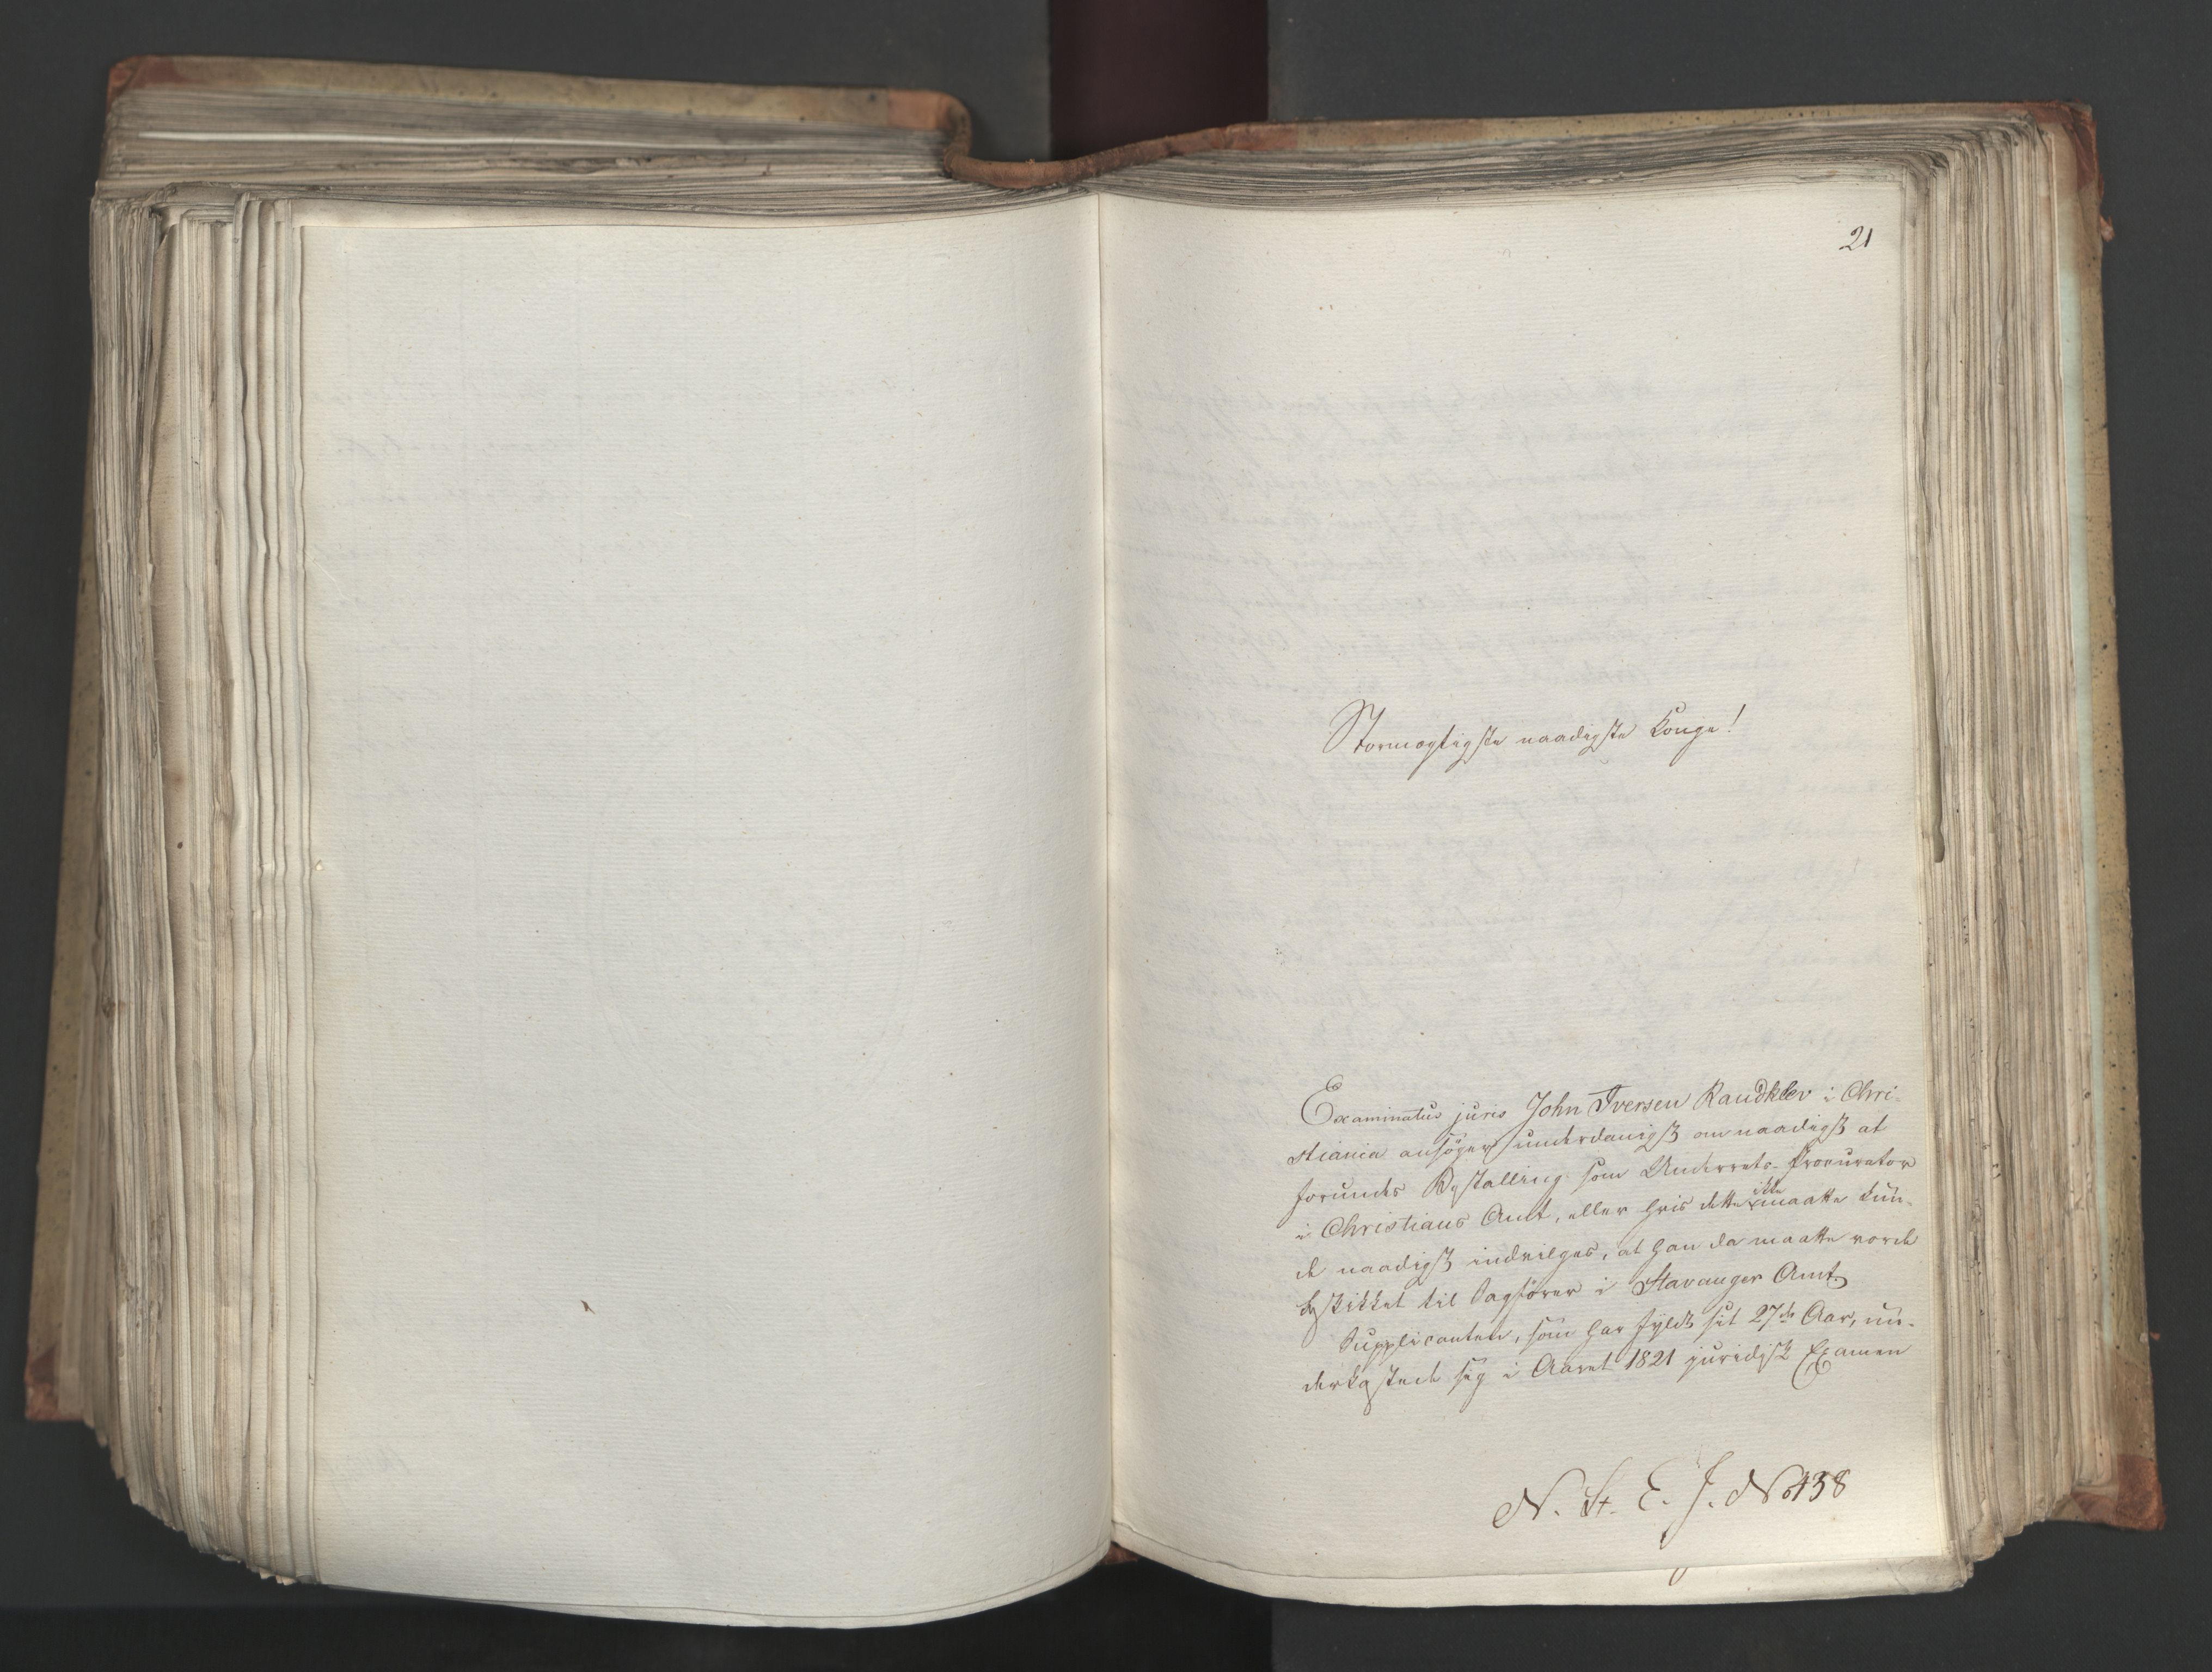 21
Stormægtigste naadigste Konge!
Examinatus juris John Iversen Raudklev i Chri-
stiania ansøger underdanigst om naadigst at
forundes Bestalling som Underrets-Procurator
i Christians Amt, eller hvis dette ikke maatte kun-
de naadigst indvilges, at han da maatte vorde
beskikket til Sagfører i Stavanger Amt.
Supplicanten, som har fyldt sit 27de Aar, un-
derkastede sig i Aaret 1821 juridisk Examen
N. St. E. J. No 438